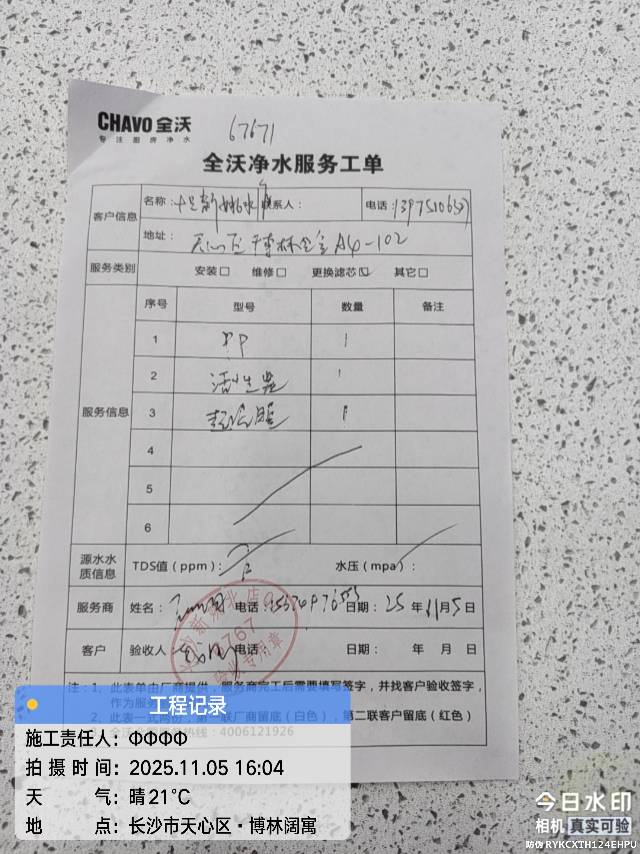 CHAVO 全沃
专注厨房净水
67671
全沃净水服务工单
客户信息
名称：
联系人：
电话：
地址：天心区博林金 A4-102
服务类别
安装□ 维修□ 更换滤芯☑ 其它□
服务信息
序号 型号 数量 备注
1 PP 1
2 活性炭 1
3 超滤膜 1
4
5
6
源水水质信息
TDS值（ppm）： 水压（mpa）：
服务商 姓名： 电话 日期：25年11月5日
客户 验收人： 电话： 日期： 年 月 日
注：1、此表单由厂商提供，服务商完工后需要填写签字，并找客户验收签字，
作为服
2、此表一式 联厂商留底（白色），第二联客户留底（红色）
热线：4006121926
工程记录
施工责任人：ФФФФ
拍摄时间：2025.11.05 16:04
天 气：晴21℃
地 点：长沙市天心区·博林阔寓
今日水印
相机 真实可验
防伪 RYKCXTH124EHPU